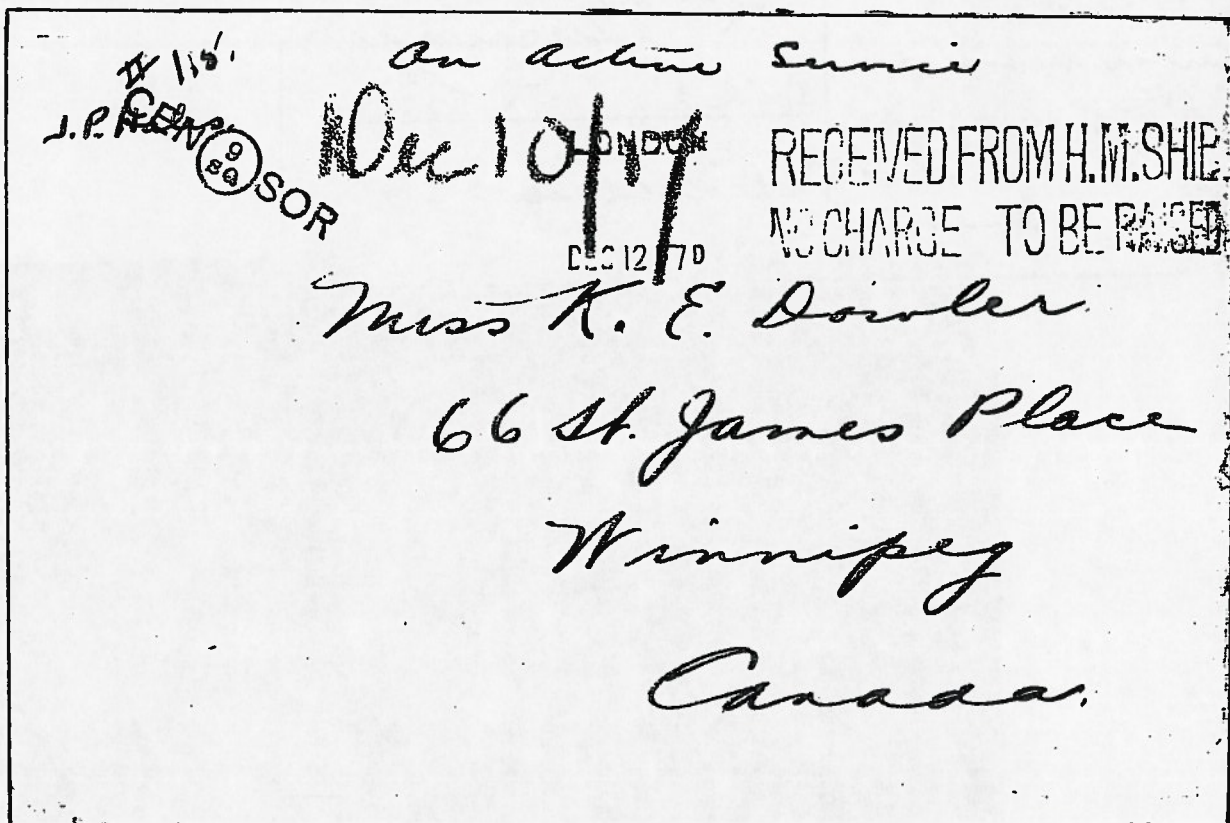 On Active Service
# 115
J.P.
CENSOR
9
Dec 10/17
LONDON
DEC 12 17
RECEIVED FROM H.M. SHIP.
NO CHARGE TO BE RAISED
Miss K. E. Dowler
66 St. James Place
Winnipeg
Canada.